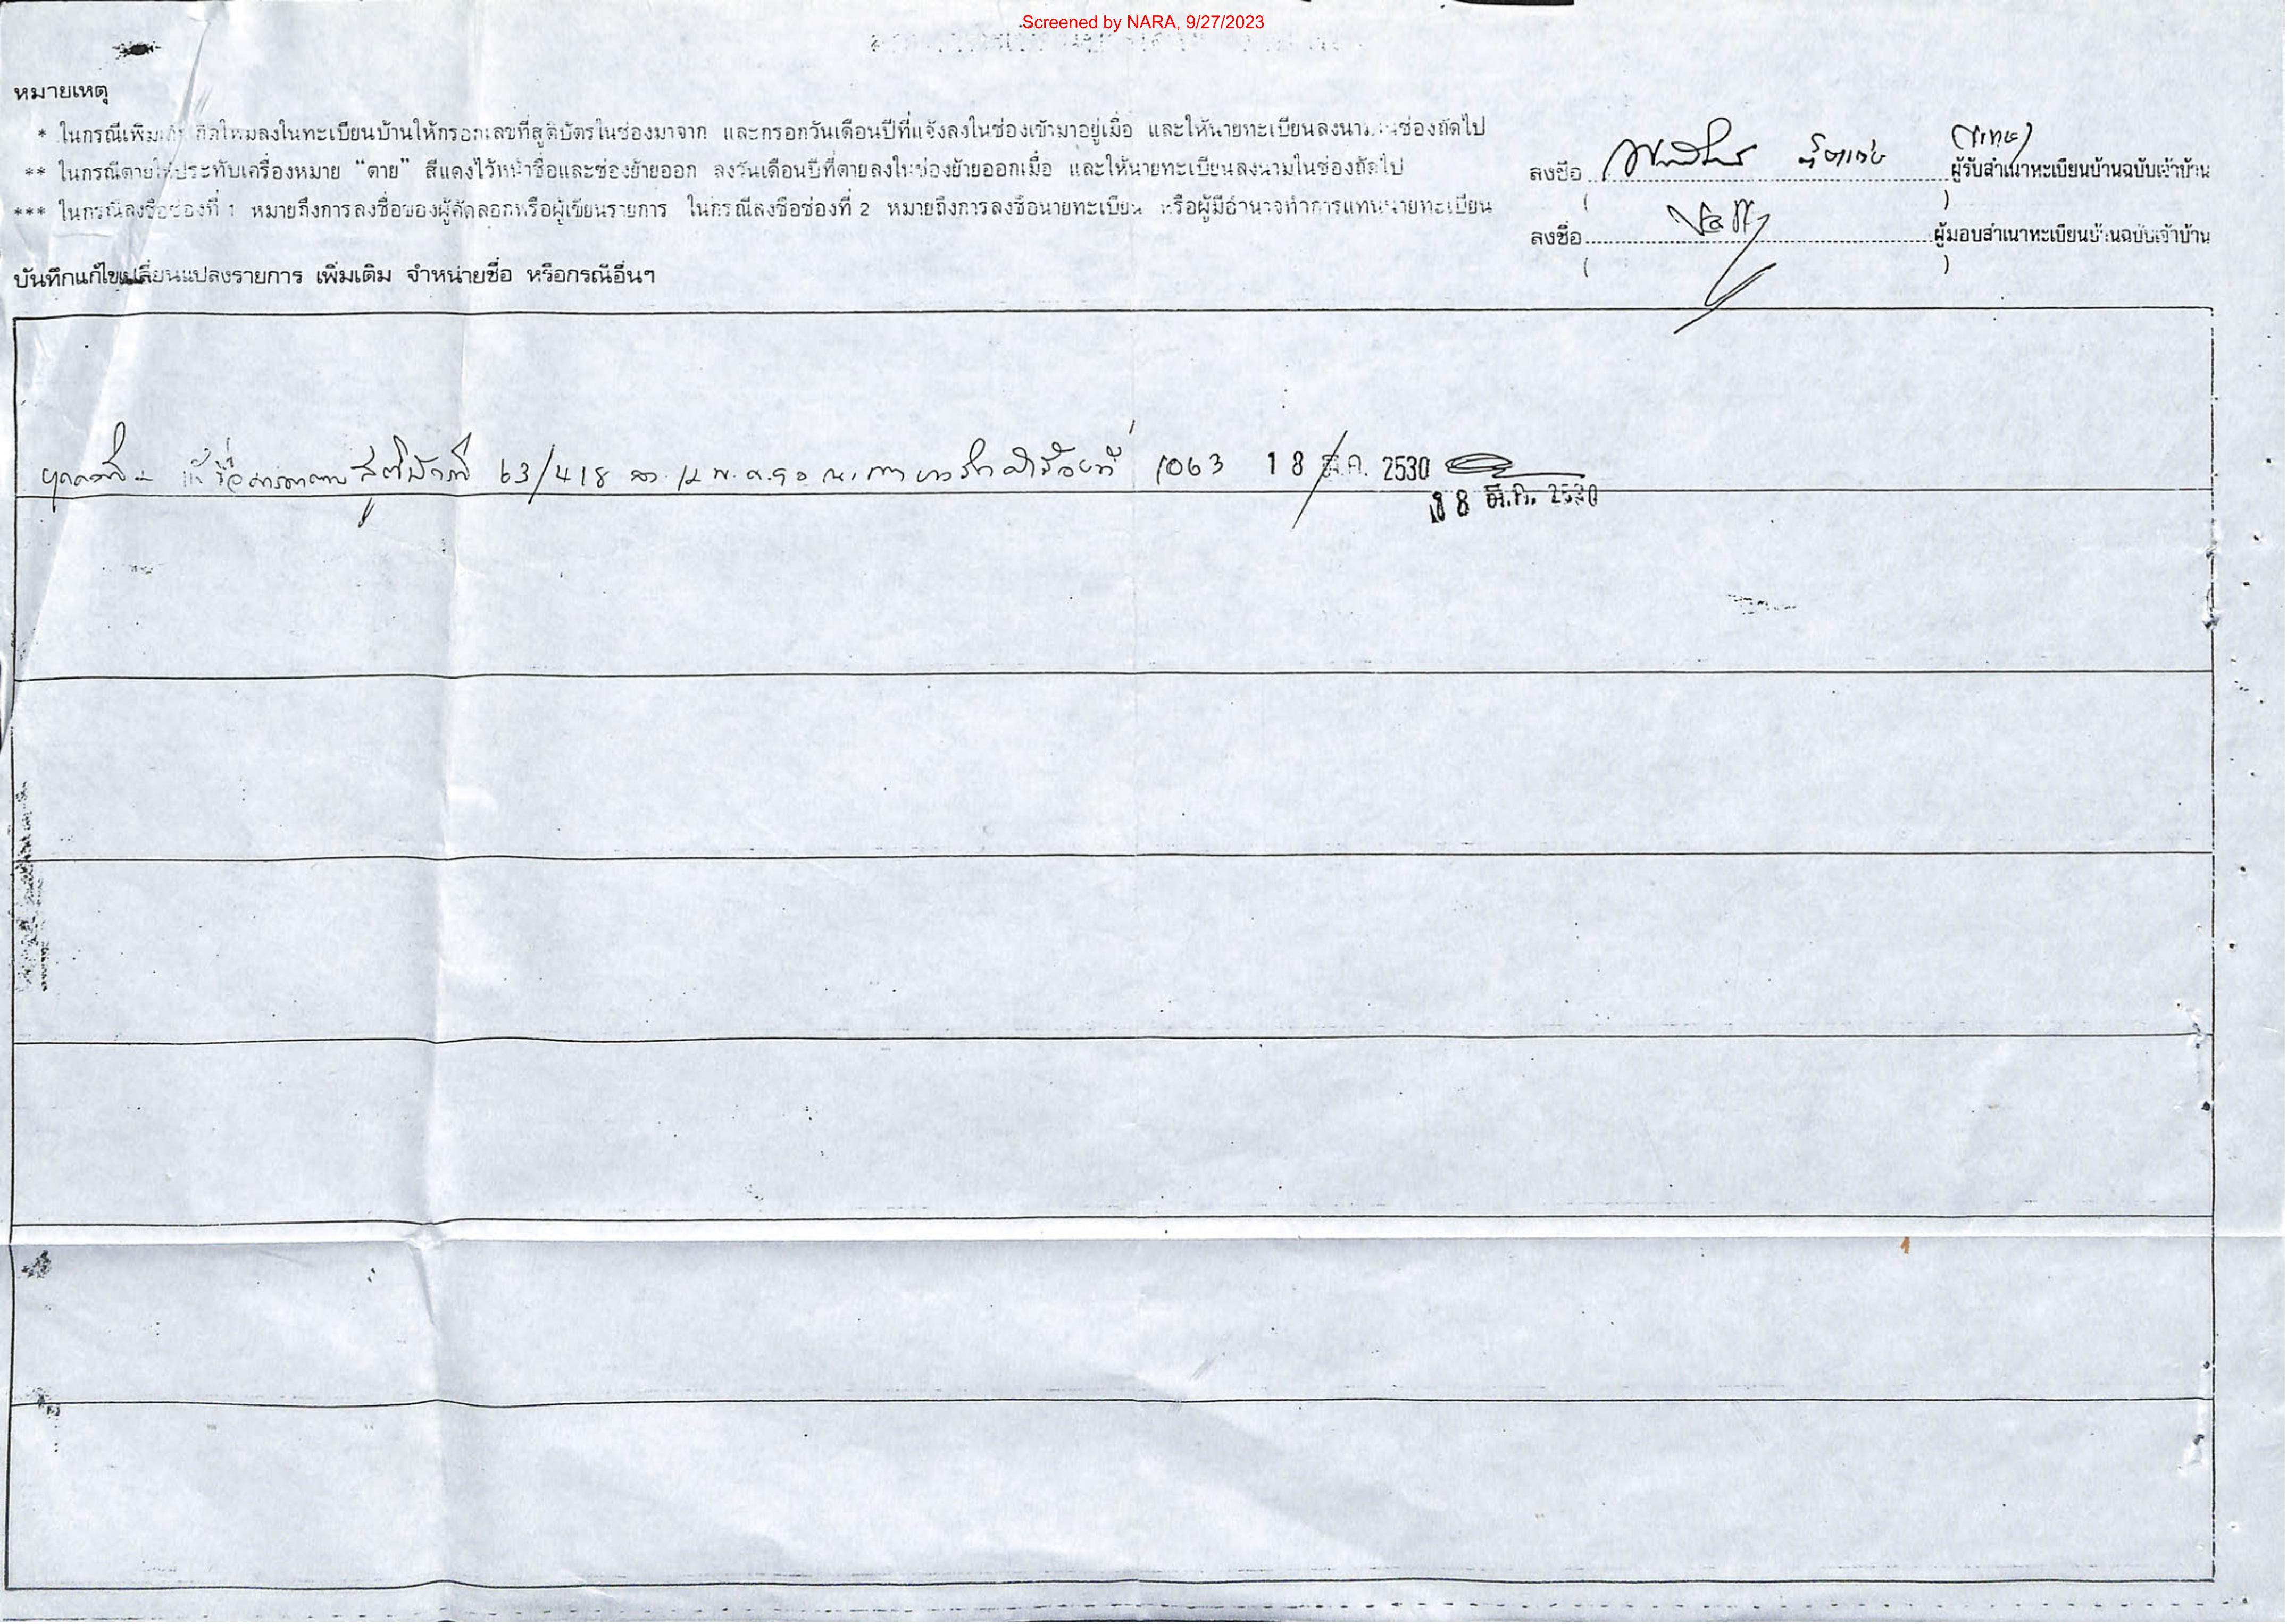 Screened by NARA, 9/27/2023
หมายเหตุ
* ในกรณีเพิ่ม ลงในทะเบียนบ้านให้กรอกเลขที่สูติบัตรในช่องมาจาก และกรอกวันเดือนปีที่แจ้งลงในช่องเข้ามาอยู่เมื่อ และให้นายทะเบียนลงนามในช่องถัดไป
** ในกรณีตายให้ประทับเครื่องหมาย “ตาย” สีแดงไว้หน้าชื่อและช่องย้ายออก ลงวันเดือนปีที่ตายลงในช่องย้ายออกเมื่อ และให้นายทะเบียนลงนามในช่องถัดไป
*** ในกรณีลงชื่อช่องที่ 1 หมายถึงการลงชื่อของผู้คัดลอกหรือผู้เขียนรายการ ในกรณีลงชื่อช่องที่ 2 หมายถึงการลงชื่อนายทะเบียน หรือผู้มีอำนาจทำการแทนนายทะเบียน
ลงชื่อ ผู้รับสำเนาทะเบียนบ้านฉบับเจ้าบ้าน
( )
ลงชื่อ ผู้มอบสำเนาทะเบียนบ้านฉบับเจ้าบ้าน
( )
บันทึกแก้ไขเปลี่ยนแปลงรายการ เพิ่มเติม จำหน่ายชื่อ หรือกรณีอื่นๆ
ชื่อ สูติบัตรที่ 63/418 ที่ 1063 18 มี.ค. 2530
18 มี.ค. 2530